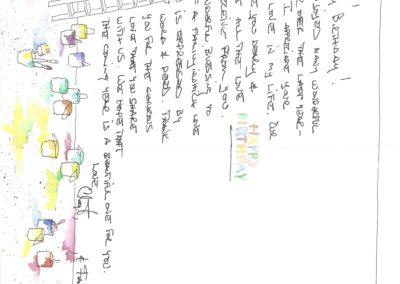 Birthday!
many wonderful
over the last year -
I appreciate your
love in my life. Our
you dearly &
HAPPY
BIRTHDAY
all the love
from you.
blessing to
a family, knowing love
is expressed by
word & deed. Thank
you for the generous
love that you share
with us. We hope that
the coming year is a beautiful one for you.
Love